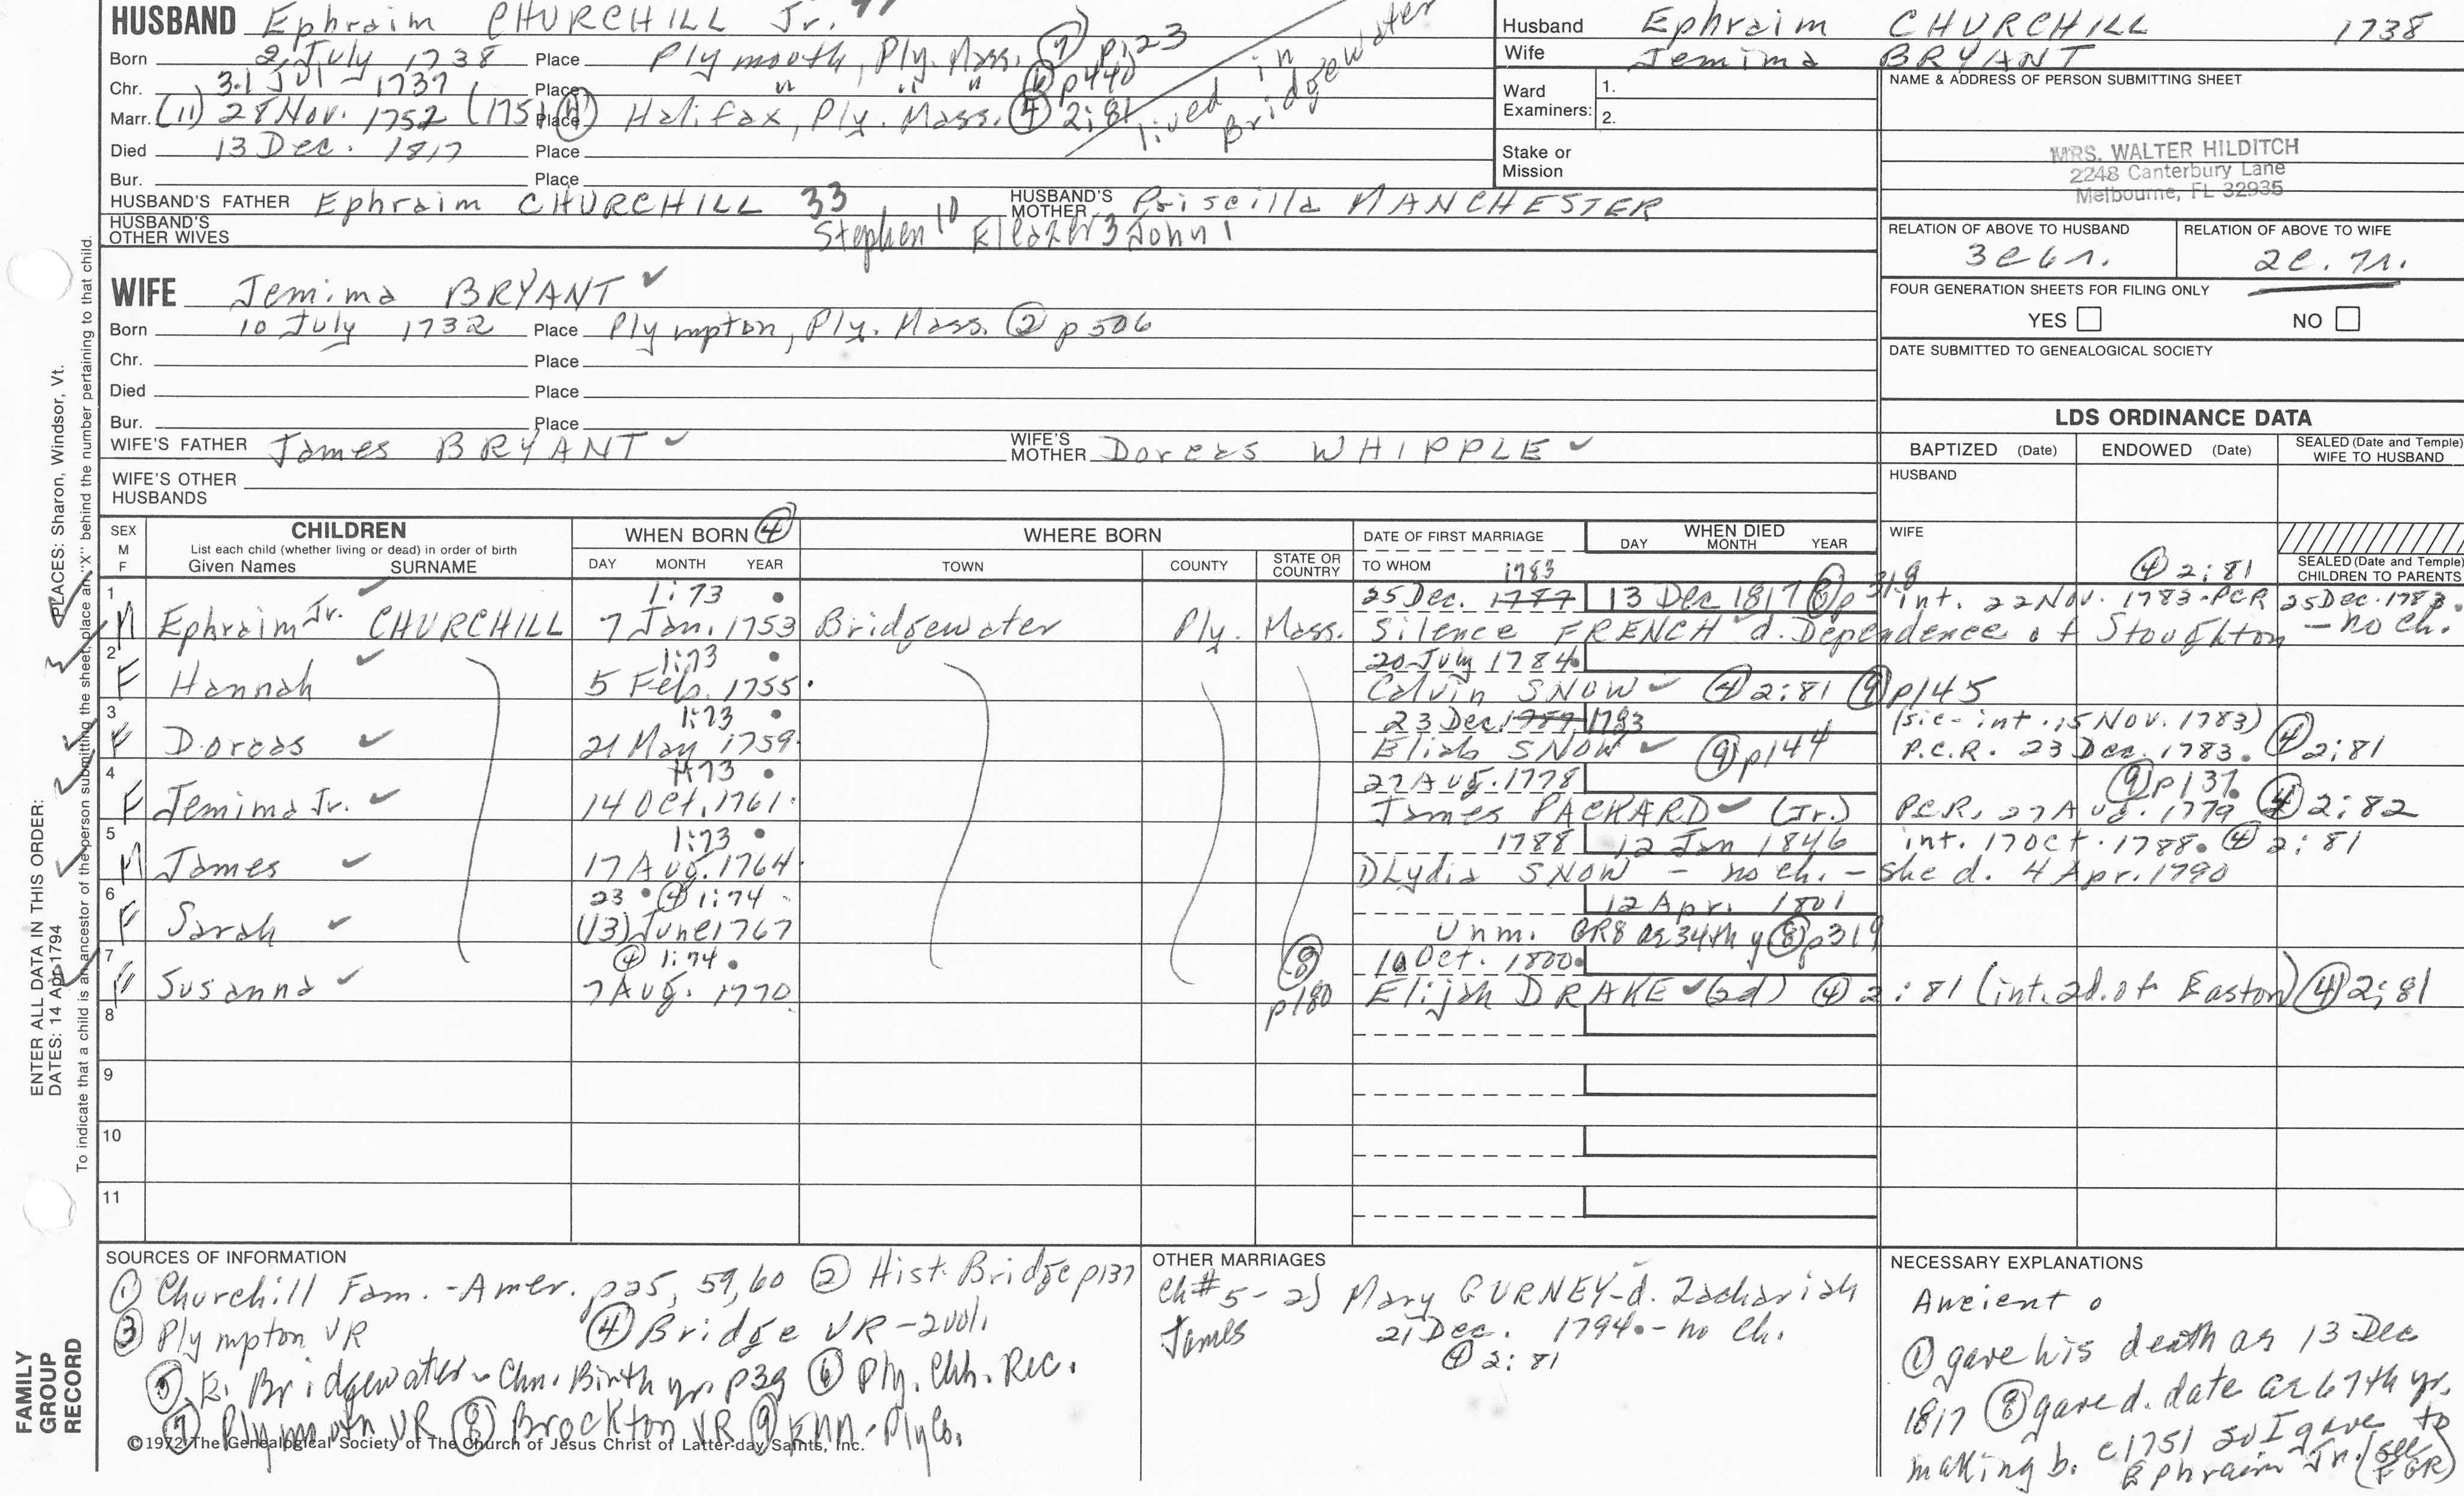 HUSBAND Ephraim CHURCHILL Jr.
Born 2 July 1738 Place Plymouth, Ply. Mass. (7) p123
Chr. 31 Jul 1737 Place " " " (6) p440
Marr. (11) 28 Nov. 1752 (1751 Place Halifax, Ply. Mass. (4) 2:81
lived in Bridgewater
Died 13 Dec. 1817 Place
Bur. Place
HUSBAND'S FATHER Ephraim CHURCHILL 33 HUSBAND'S MOTHER Priscilla MANCHESTER
HUSBAND'S OTHER WIVES Stephen 10 Eleazer 3 John 1
WIFE Jemima BRYANT ✓
Born 10 July 1732 Place Plympton, Ply. Mass. (2) p506
Chr. Place
Died Place
Bur. Place
WIFE'S FATHER James BRYANT ✓ WIFE'S MOTHER Dorcas WHIPPLE ✓
WIFE'S OTHER HUSBANDS
Husband Ephraim CHURCHILL 1738
Wife Jemima BRYANT
Ward Examiners: 1.
2.
Stake or Mission
NAME & ADDRESS OF PERSON SUBMITTING SHEET
MRS. WALTER HILDITCH
2248 Canterbury Lane
Melbourne, FL 32935
RELATION OF ABOVE TO HUSBAND RELATION OF ABOVE TO WIFE
3c6r. 2c.7r.
FOUR GENERATION SHEETS FOR FILING ONLY
YES NO
DATE SUBMITTED TO GENEALOGICAL SOCIETY
LDS ORDINANCE DATA
BAPTIZED (Date) ENDOWED (Date) SEALED (Date and Temple) WIFE TO HUSBAND
HUSBAND
WIFE
SEALED (Date and Temple) CHILDREN TO PARENTS
SEX M F
CHILDREN
List each child (whether living or dead) in order of birth
Given Names SURNAME
WHEN BORN (4)
DAY MONTH YEAR
WHERE BORN
TOWN COUNTY STATE OR COUNTRY
DATE OF FIRST MARRIAGE
TO WHOM
WHEN DIED
DAY MONTH YEAR
1783 (4) 2:81
1 1:73 25 Dec. 1787 13 Dec 1817 (8) p319 int. 22 Nov. 1783. PCR 25 Dec. 1783.
M Ephraim Jr. CHURCHILL 7 Jan. 1753 Bridgewater Ply. Mass. Silence FRENCH d. Dependence of Stoughton - no ch.
2 1:73 20 July 1784
F Hannah ✓ 5 Feb. 1755 Calvin SNOW ✓ (4) 2:81 (9) p145
3 1:73 23 Dec 1783 (sic - int. 15 Nov. 1783)
F Dorcas ✓ 21 May 1759 Eliab SNOW ✓ (9) p144 P.C.R. 23 Dec. 1783. (4) 2:81
4 1:73 27 Aug. 1778 (9) p137.
F Jemima Jr. ✓ 14 Oct. 1761 James PACKARD ✓ (Jr.) P.C.R. 27 Aug. 1779 (4) 2:82
5 1:73 1788 12 Jan 1846 int. 17 Oct. 1788. (4) 2:81
M James ✓ 17 Aug. 1764 1) Lydia SNOW - no ch. - she d. 4 Apr. 1790
6 23 (4) 1:74 12 Apr. 1801
F Sarah ✓ (13) June 1767 Unm. GR8 ae 34th y (8) p319
7 (4) 1:74 10 Oct. 1800
F Susanna ✓ 7 Aug. 1770 (8) p180 Elijah DRAKE ✓ (2d) (4) 2:81 (int. 2d. of Easton) (4) 2:81
8
9
10
11
SOURCES OF INFORMATION
(1) Churchill Fam. - Amer. p25, 59, 60 (2) Hist. Bridge p137
(3) Plympton VR (4) Bridge VR - 2 vol.
(5) E. Bridgewater - Chn. Birth yr. p39 (6) Ply. Chh. Rec.
(7) Plymouth VR (8) Brockton VR (9) Enn - Ply Co.
©1972 The Genealogical Society of The Church of Jesus Christ of Latter-day Saints, Inc.
OTHER MARRIAGES
Ch #5 - 2) Mary GURNEY - d. Zachariah
James 21 Dec. 1794. - no ch.
(4) 2:81
NECESSARY EXPLANATIONS
Ancient o
(1) gave his death as 13 Dec
1817 (8) gave d. date ae 67th yr.
making b. c1751 so I gave to
Ephraim Jr. (see FGR)
ENTER ALL DATA IN THIS ORDER:
DATES: 14 Apr 1794 PLACES: Sharon, Windsor, Vt.
To indicate that a child is an ancestor of the person submitting the sheet, place an "X" behind the number pertaining to that child.
FAMILY GROUP RECORD